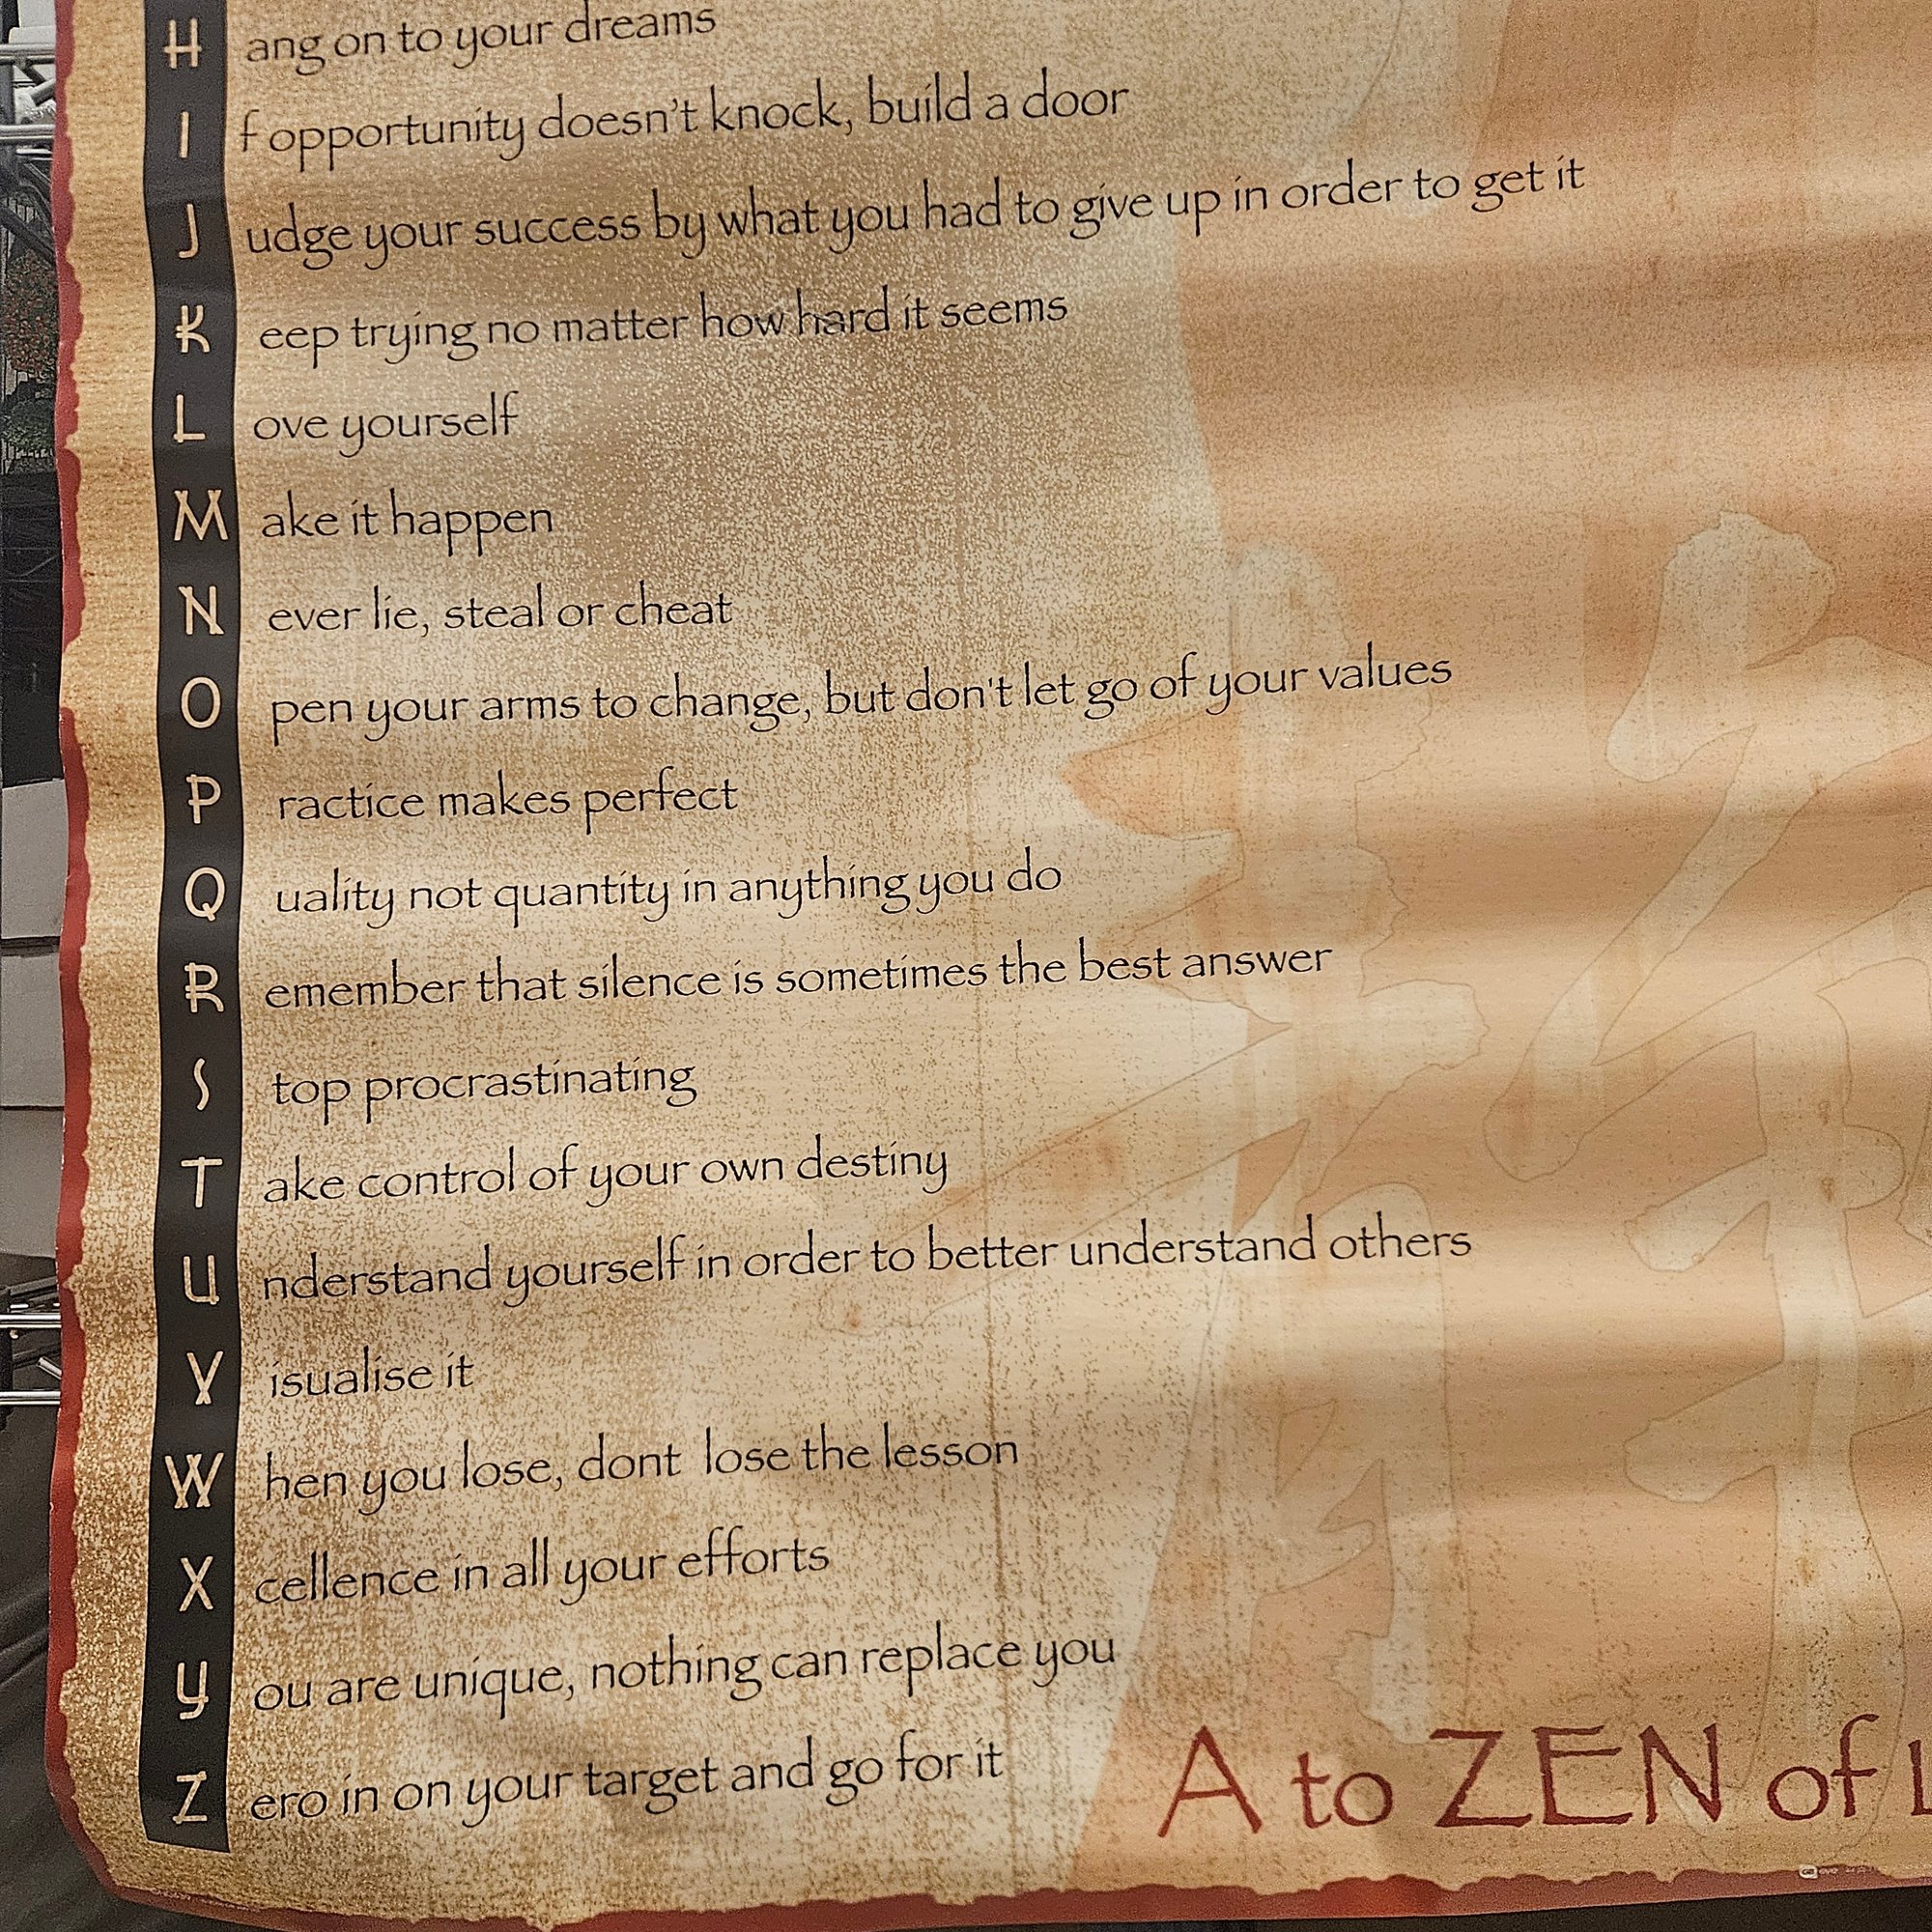 H ang on to your dreams
I f opportunity doesn't knock, build a door
J udge your success by what you had to give up in order to get it
K eep trying no matter how hard it seems
L ove yourself
M ake it happen
N ever lie, steal or cheat
O pen your arms to change, but don't let go of your values
P ractice makes perfect
Q uality not quantity in anything you do
R emember that silence is sometimes the best answer
S top procrastinating
T ake control of your own destiny
U nderstand yourself in order to better understand others
V isualise it
W hen you lose, dont lose the lesson
X cellence in all your efforts
Y ou are unique, nothing can replace you
Z ero in on your target and go for it
A to ZEN of